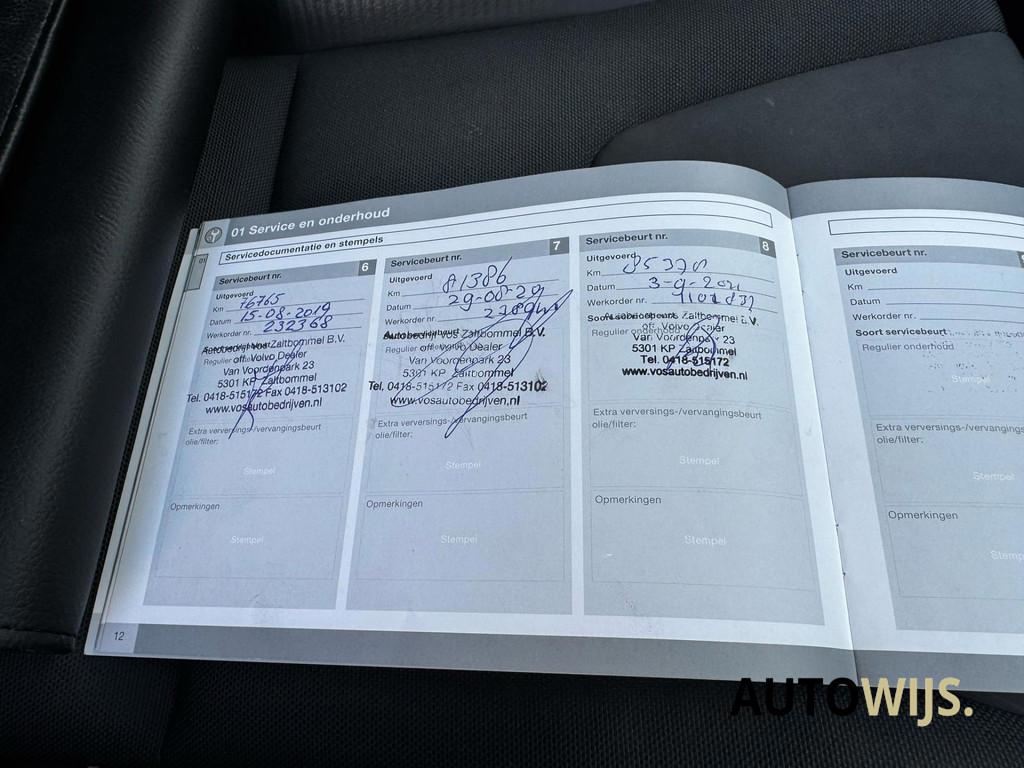 01 Service en onderhoud
Servicedocumentatie en stempels
01
Servicebeurt nr. 6
Uitgevoerd
Km 76765
Datum 15-08-2019
Werkorder nr. 232368
Autobedrijf Vos Zaltbommel
Regulier
off. Volvo Dealer
Van Voordenpark 23
5301 KP Zaltbommel
Tel. 0418-515172 Fax 0418-513102
www.vosautobedrijven.nl
Extra verversings-/vervangingsbeurt
olie/filter:
Stempel
Opmerkingen
Stempel
Servicebeurt nr. 7
Uitgevoerd
Km 81386
Datum 29-08-20
Werkorder nr.
Autobedrijf Vos Zaltbommel B.V.
Regulier
off. Volvo Dealer
Van Voordenpark 23
5301 KP Zaltbommel
Tel. 0418-515172 Fax 0418-513102
www.vosautobedrijven.nl
Extra verversings-/vervangingsbeurt
olie/filter:
Stempel
Opmerkingen
Stempel
Servicebeurt nr. 8
Uitgevoerd
Km 85370
Datum 3-9-2021
Werkorder nr. 4101832
Zaltbommel B.V.
Regulier onderhoud
off. Volvo Dealer
Van Voordenpark 23
5301 KP Zaltbommel
Tel. 0418-515172
www.vosautobedrijven.nl
Extra verversings-/vervangingsbeurt
olie/filter:
Stempel
Opmerkingen
Stempel
Servicebeurt nr.
Uitgevoerd
Km
Datum
Werkorder nr.
Soort servicebeurt
Regulier onderhoud
Stempel
Extra verversings-/vervangingsbeurt
olie/filter:
Stempel
Opmerkingen
Stemp
12
AUTOWIJS.